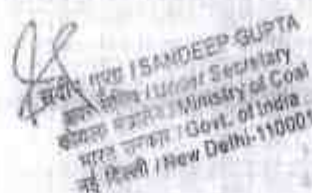 गुप्ता / SANDEEP GUPTA
सचिव / Under Secretary
कोयला मंत्रालय / Ministry of Coal
भारत सरकार / Govt. of India
नई दिल्ली / New Delhi-110001